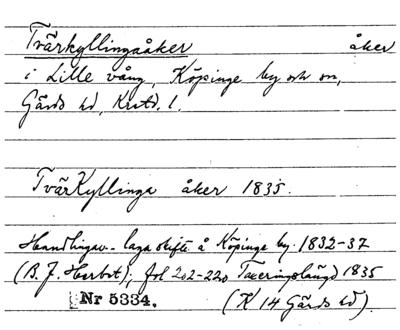 Tvärkyllingaåker åker
i Lille vång, Köpinge by och sn,
Gärds hd, Krstd. l.
TvärKyllinga åker 1835.
Handlingar. laga skifte å Köpinge by 1832-37
(B. J. Herbst); fol 202-220 Taxeringslängd 1835
Nr 5334. (K 14 Gärds hd).